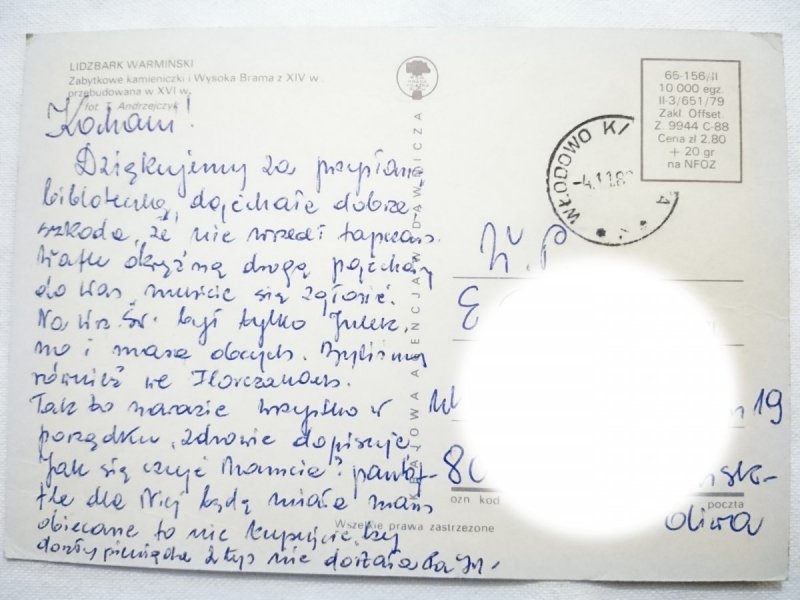 LIDZBARK WARMIŃSKI
Zabytkowe kamieniczki i Wysoka Brama z XIV w.,
przebudowana w XVI w.
fot. T. Andrzejczyk
KRAJOWA AGENCJA WYDAWNICZA
65-156/II
10 000 egz.
II-3/651/79
Zakł. Offset.
Z. 9944 C-88
Cena zł 2,80
+ 20 gr
na NFOZ
WŁODOWO K/
-4.11.8
Kochani!
Dziękujemy za przysłaną
bibliotekę, dojechała dobrze
szkoda, że nie wszedł tapczan.
okrężną drogą pojechały
do Was, musicie się zgłosić.
Na Wsz. Św. był tylko Julek,
no i masa obcych. Byliśmy
również we
Tak to narazie wszystko w
porządku, zdrowie dopisuje.
Jak się czuje Mamcia?
dla Niej będę miała
obiecane to nie kupujcie,
pieniądze nie
W.P
E
19
80
Oliwa
ozn. kod
poczta
Wszelkie prawa zastrzeżone